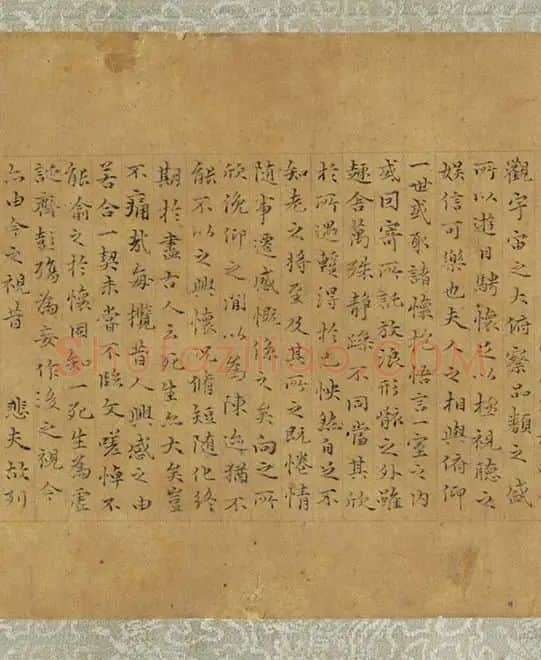 觀宇宙之大俯察品類之盛
所以遊目騁懷足以極視聽之
娛信可樂也夫人之相與俯仰
一世或取諸懷抱悟言一室之內
或因寄所託放浪形骸之外雖
趣舍萬殊静躁不同當其欣
於所遇蹔得於己怏然自足不
知老之將至及其所之既惓情
隨事遷感慨係之矣向之所
欣俛仰之閒以為陳迹猶不
能不以之興懷況脩短隨化終
期於盡古人云死生亦大矣豈
不痛哉每攬昔人興感之由
若合一契未嘗不臨文嗟悼不
能喻之於懷固知一死生為虛
誕齊彭殤為妄作後之視今
亦由今之視昔 悲夫故列
Shufaziliao.COM